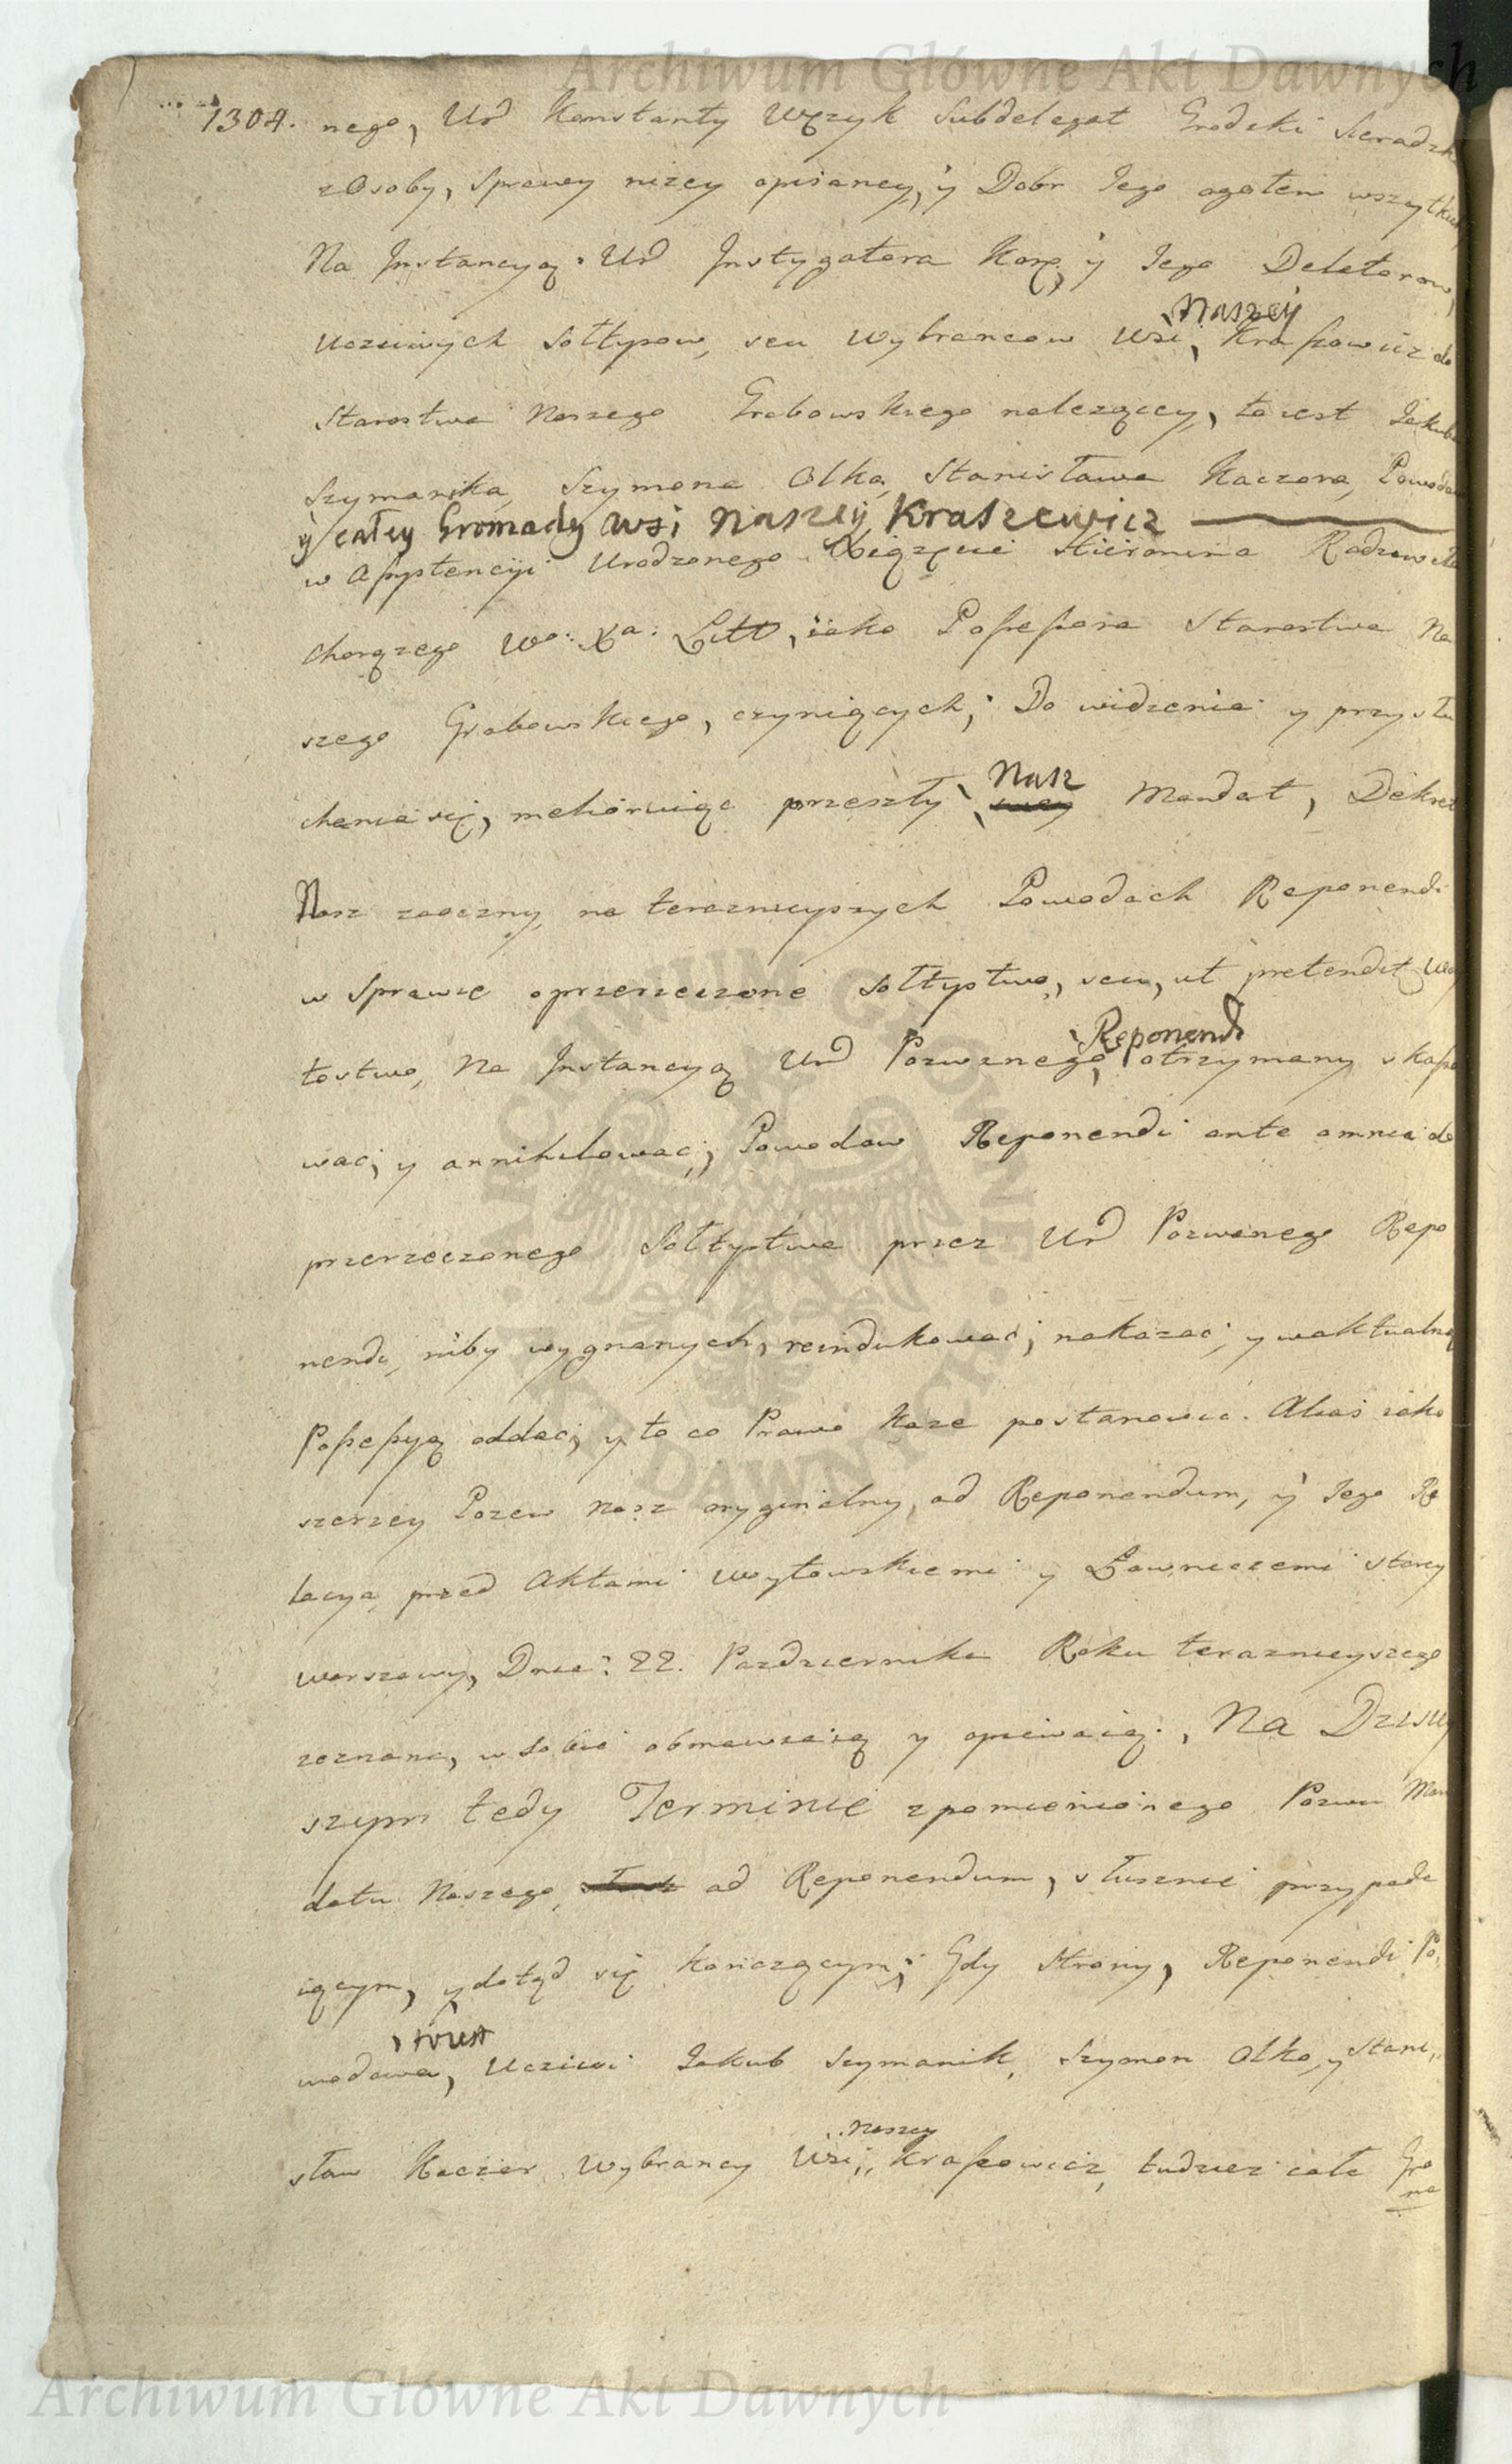 Archiwum Główne Akt Dawnych
1304. nego, Ur Konstanty Wężyk Subdelegat Grodzki Sieradzki
z Osoby, Sprawy niżey opisaney, y Dobr Jego ogołem wszytkich
Na Instancyą Ur Instygatora Kor: y Jego Delatorow,
Naszey
uczciwych Sołtysow, seu Wybrancow Wsi, Kraszewicz do
Starostwa Naszego Grabowskiego należącey, to iest Jakuba
Szymanika, Szymona Olka, Stanisława Kaczora, Powodow
y całey Gromady wsi Naszey Kraszewicz
w Assystencyi Urodzonego Xiążęcia Hieronima Radziwiłła
chorążego Wo: Xa: Litt, iako Possessora Starostwa Na
szego Grabowskiego, czyniących; Do widzenia y przysłu
Nasz
chania się, mehoruiąc przeszły Mandat, Dekret
Nasz zaoczny, na teraznieyszych Powodach Reponendi
w Sprawie oprzerzeczone Sołtystwo, seu, ut pretendit Woy
Reponendi
tostwo, Na Instancyą Ur Pozwanego, otrzymany skasso
wać, y annihilować; Powodow Reponendi ante omnia do
przerzeczonego Sołtystwa przez Ur Pozwanego Repo
nendi, niby wygnanych, reindukować, nakazać, y w aktualną
Possessyą oddać, y to co Prawo każe postanowić. Aliaś iako
szerzey Pozew nasz oryginalny, ad Reponendum, y Jego Re
lacya, przed Aktami Woytowskiemi y Ławniczemi starey
Warszawy, Dnia: 22. Pazdziernika Roku teraznieyszego
zeznana, w sobie obmawiaią y opiewaią. Na Dzisiey
szym tedy Terminie z pomienionego Pozwu Man
datu Naszego, ad Reponendum, słusznie przypada
iącym, y dotąd się kończącym; Gdy Strony, Reponendi Po,
to iest
wodowa, Uczciwi Jakub Szymanik, Szymon Olka, y Stani,
naszey
sław Kaczor Wybrancy Wsi, Kraszewicz, tudzież cała Gro
ma
Archiwum Główne Akt Dawnych